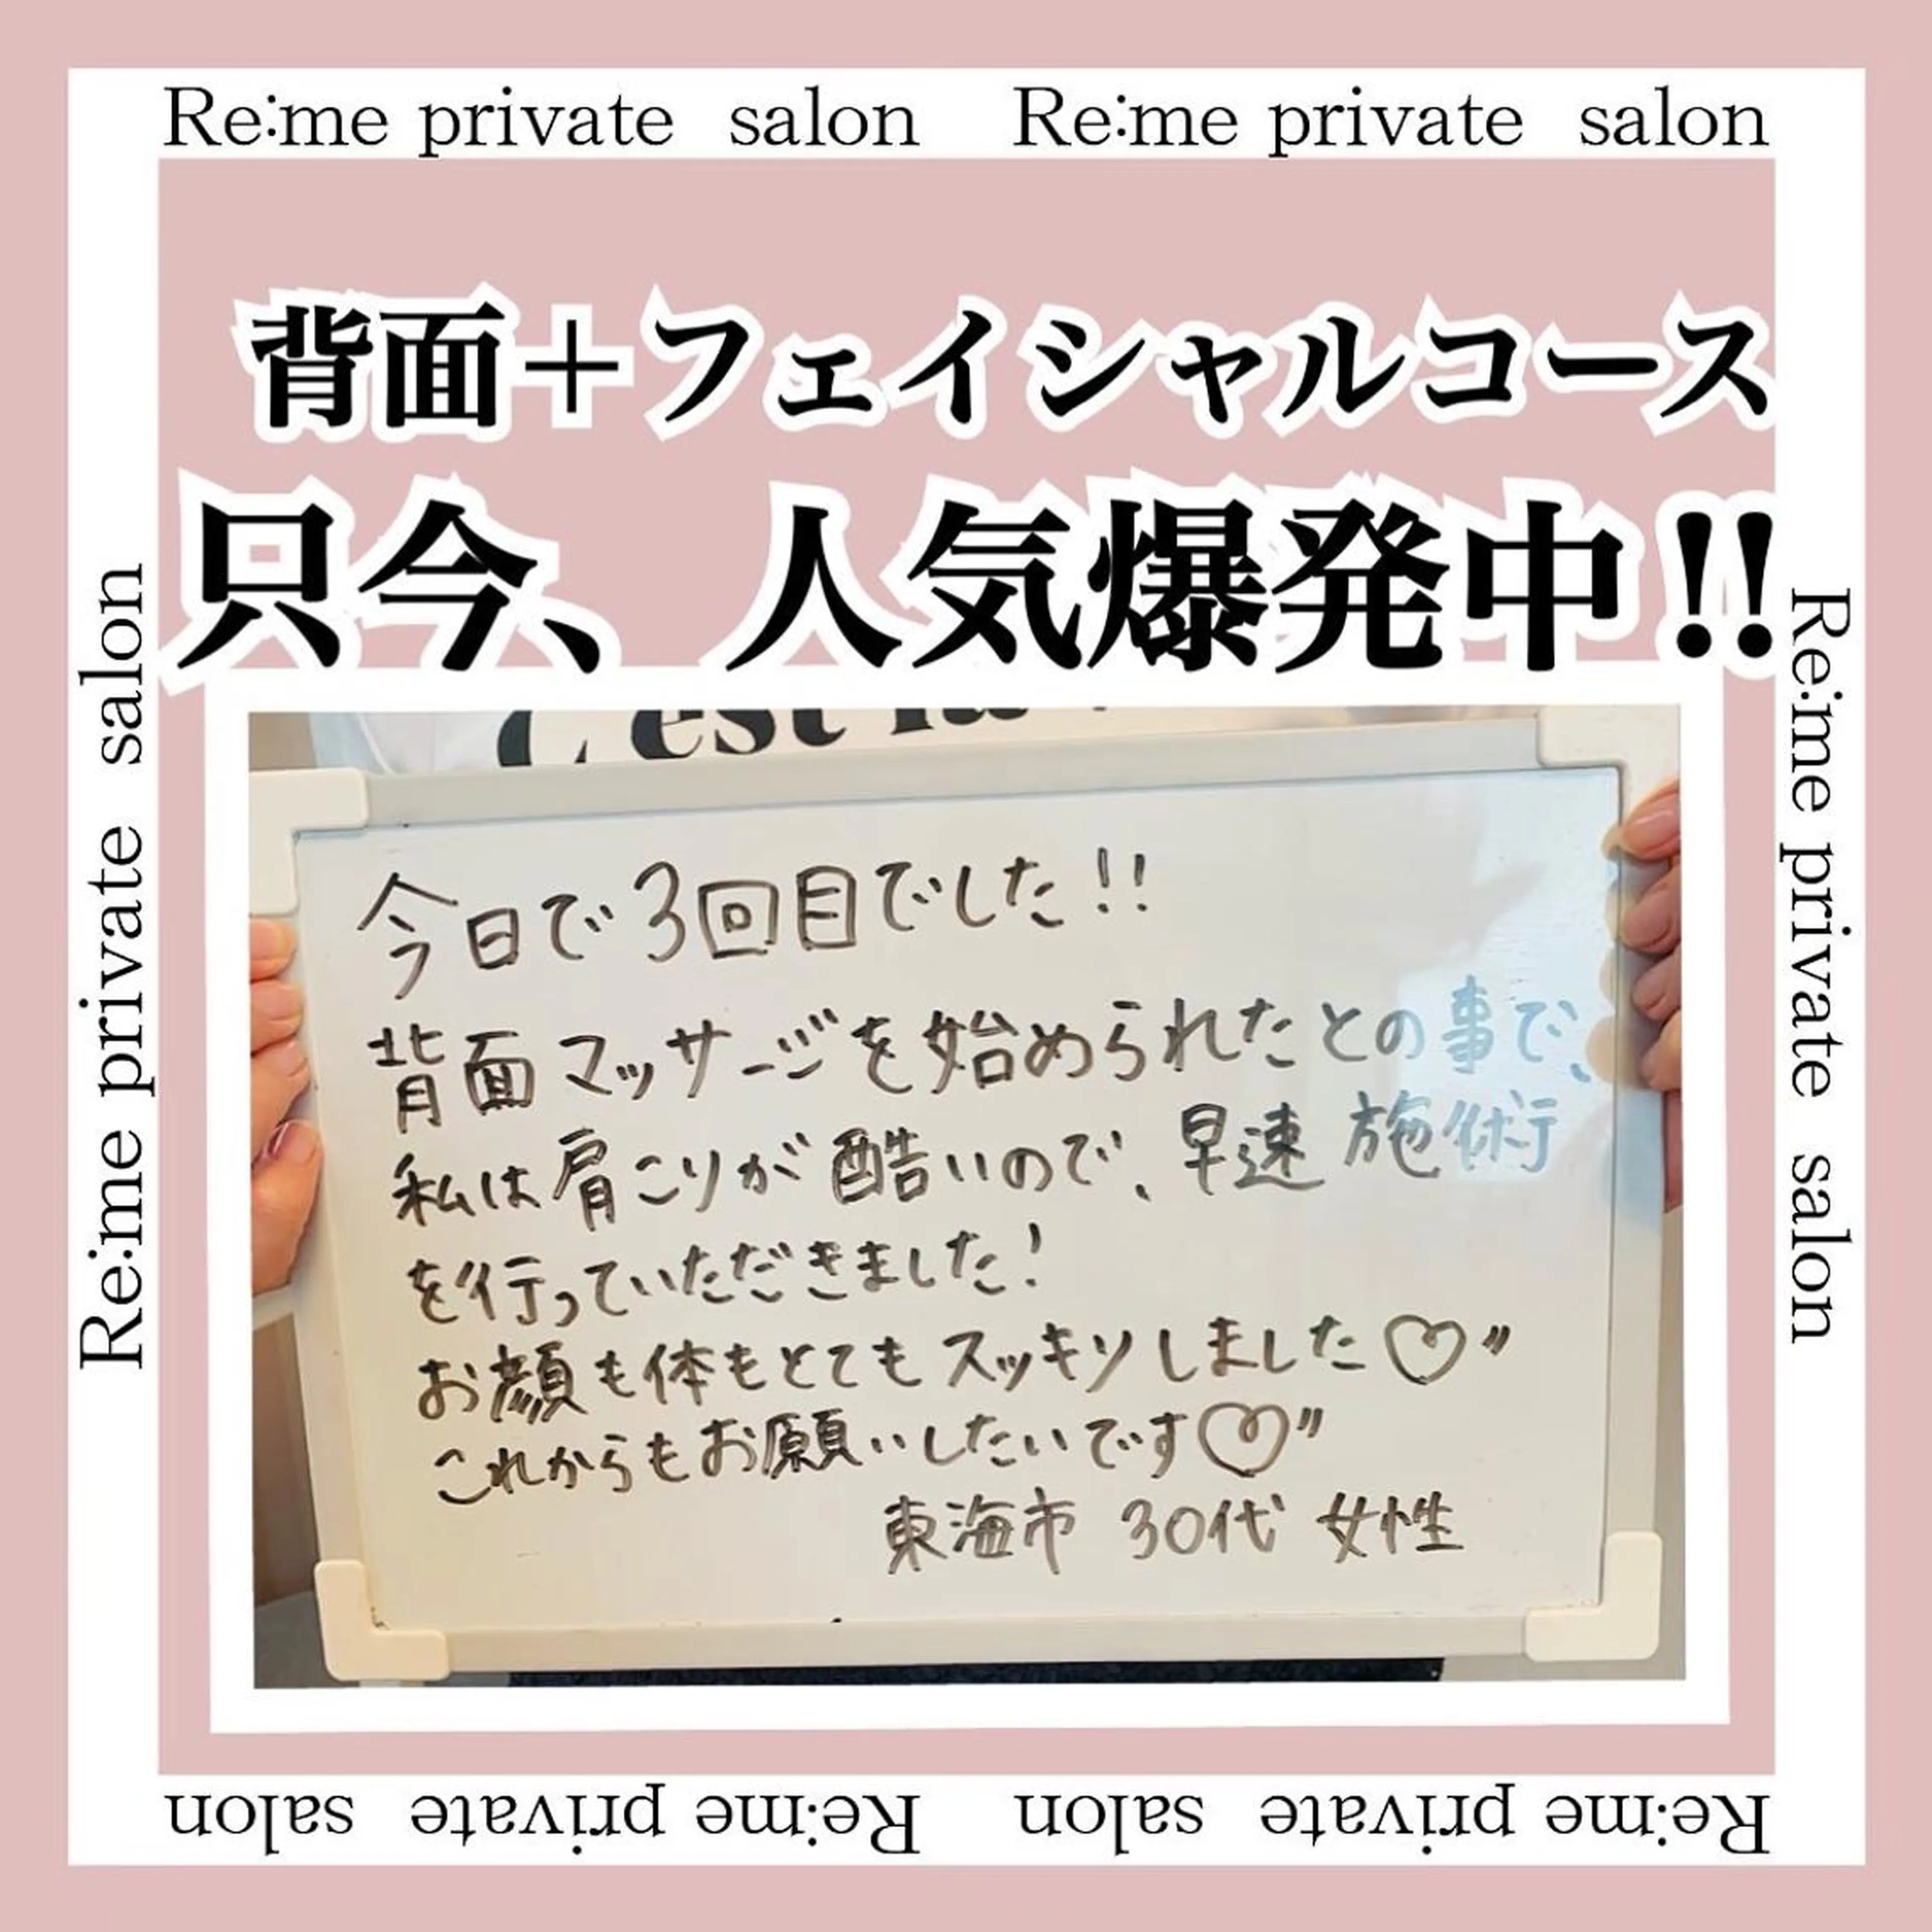 Re:me private salon Re:me private salon
背面＋フェイシャルコース
只今、人気爆発中!!
C'est la
今日で3回目でした!!
背面マッサージを始められたとの事で、
私は肩こりが酷いので、早速施術
を行っていただきました!
お顔も体もとてもスッキリしました♡〃
これからもお願いしたいです♡〃
東海市 30代 女性
Re:me private salon
Re:me private salon
Re:me private salon Re:me private salon